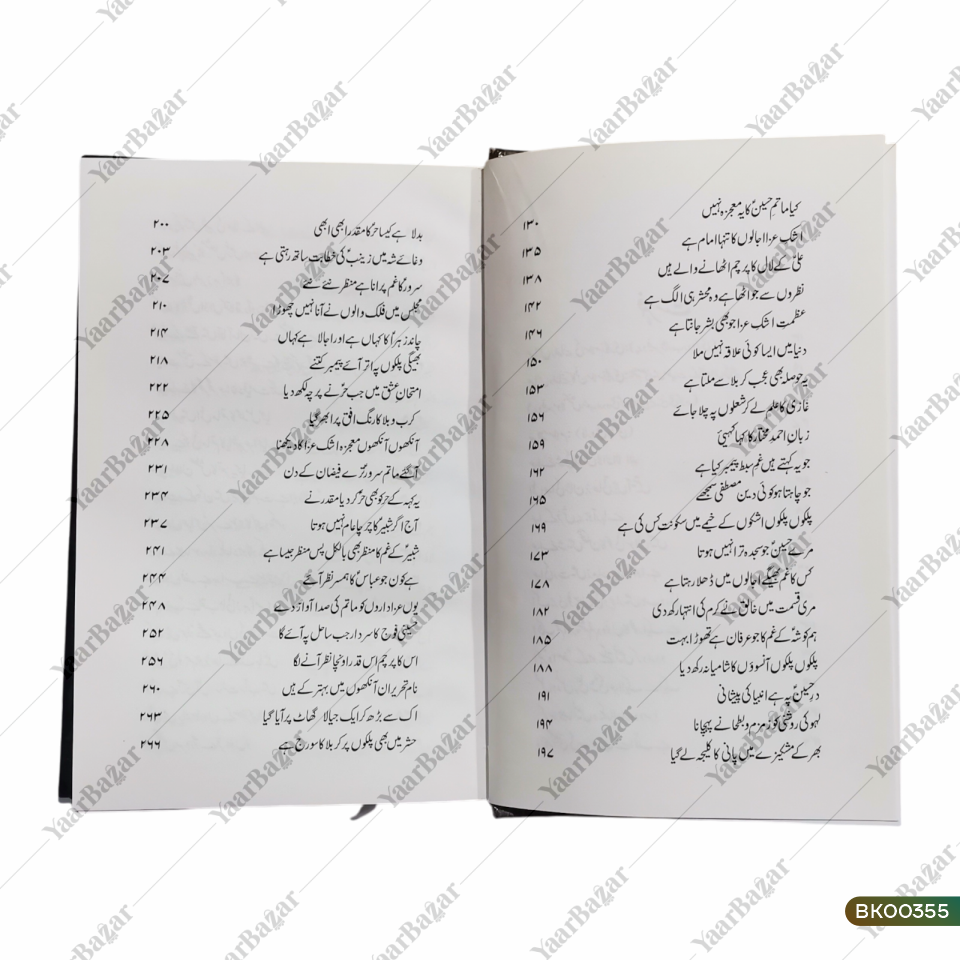 کیا ماتمِ حسینؑ کا یہ معجزہ نہیں ۱۳۰
اشک عزا اجالوں کا تنہا امام ہے ۱۳۵
علیؑ کے لال کا پرچم اٹھانے والے ہیں ۱۳۸
نظروں سے جو اٹھا ہے وہ محشر ہی الگ ہے ۱۴۲
عظمتِ اشک عزا جو بھی بشر جانتا ہے ۱۴۶
دنیا میں ایسا کوئی علاقہ نہیں ملا ۱۵۰
یہ حوصلہ بھی عجب کربلا سے ملتا ہے ۱۵۳
غازیؑ کا علم لے کر شعلوں پہ چلا جائے ۱۵۶
زبان احمد مختارؐ کا کہا کہیئے ۱۵۹
جو یہ کہتے ہیں غم سبط پیمبر کیا ہے ۱۶۲
جو چاہتا ہو کوئی دین مصطفیٰ سمجھے ۱۶۵
پلکوں پلکوں اشکوں کے خیمے میں سکونت کس کی ہے ۱۶۹
مرے حسینؑ جو سجدہ ترا نہیں ہوتا ۱۷۳
کس کا غم بھیگے اجالوں میں ڈھلا رہتا ہے ۱۷۸
مری قسمت میں خالق نے کرم کی انتہا رکھ دی ۱۸۲
ہم کو شہؑ کے غم کا جو عرفان ہے تھوڑا بہت ۱۸۵
پلکوں پلکوں آنسوؤں کا شامیانہ رکھ دیا ۱۸۸
درِ حسینؑ پہ ہے انبیا کی پیشانی ۱۹۱
لہو کی روشنی کو زمزم و بطحا نے پہچانا ۱۹۴
بھر کے مشکیزے میں پانی کا کلیجہ لے گیا ۱۹۷
بدلا ہے کیسا حرؑ کا مقدر ابھی ابھی ۲۰۰
وغائے شہ میں زینبؑ کی خطابت ساتھ رہتی ہے ۲۰۳
سرورؑ کا غم پرانا ہے منظر نئے نئے ۲۰۷
مجلس میں فلک والوں نے آنا نہیں چھوڑا ۲۱۰
چاند زہراؑ کا کہاں ہے اور اجالا ہے کہاں ۲۱۴
بھیگی پلکوں پہ اتر آئے پیمبر کتنے ۲۱۸
امتحانِ عشق میں جب حرؑ نے پرچہ لکھ دیا ۲۲۲
کرب و بلا کا رنگ افق پر ابھر گیا ۲۲۵
آنکھوں آنکھوں معجزہ اشک عزا کا دیکھنا ۲۲۸
آگئے ماتم سرورؑ ترے فیضان کے دن ۲۳۱
یہ کہہ کے حر کو بھی حرؑ کر دیا مقدر نے ۲۳۴
آج اگر شبیرؑ کا چرچا عام نہیں ہوتا ۲۳۷
شبیرؑ کے غم کا منظر بھی بالکل پس منظر جیسا ہے ۲۴۱
ہے کون جو عباسؑ کا ہمسر نظر آئے ۲۴۴
یوں عزاداروں کو ماتم کی صدا آواز دے ۲۴۸
حسینی فوج کا سردار جب ساحل پہ آئے گا ۲۵۲
اس کا پرچم اس قدر اونچا نظر آنے لگا ۲۵۶
نام تحریر ان آنکھوں میں بہتر کے ہیں ۲۶۰
اک سے بڑھ کر ایک جیالا گھاٹ پر آیا گیا ۲۶۳
حشر میں بھی پلکوں پر کربلا کا سورج ہے ۲۶۶
YaarBazar
BK00355